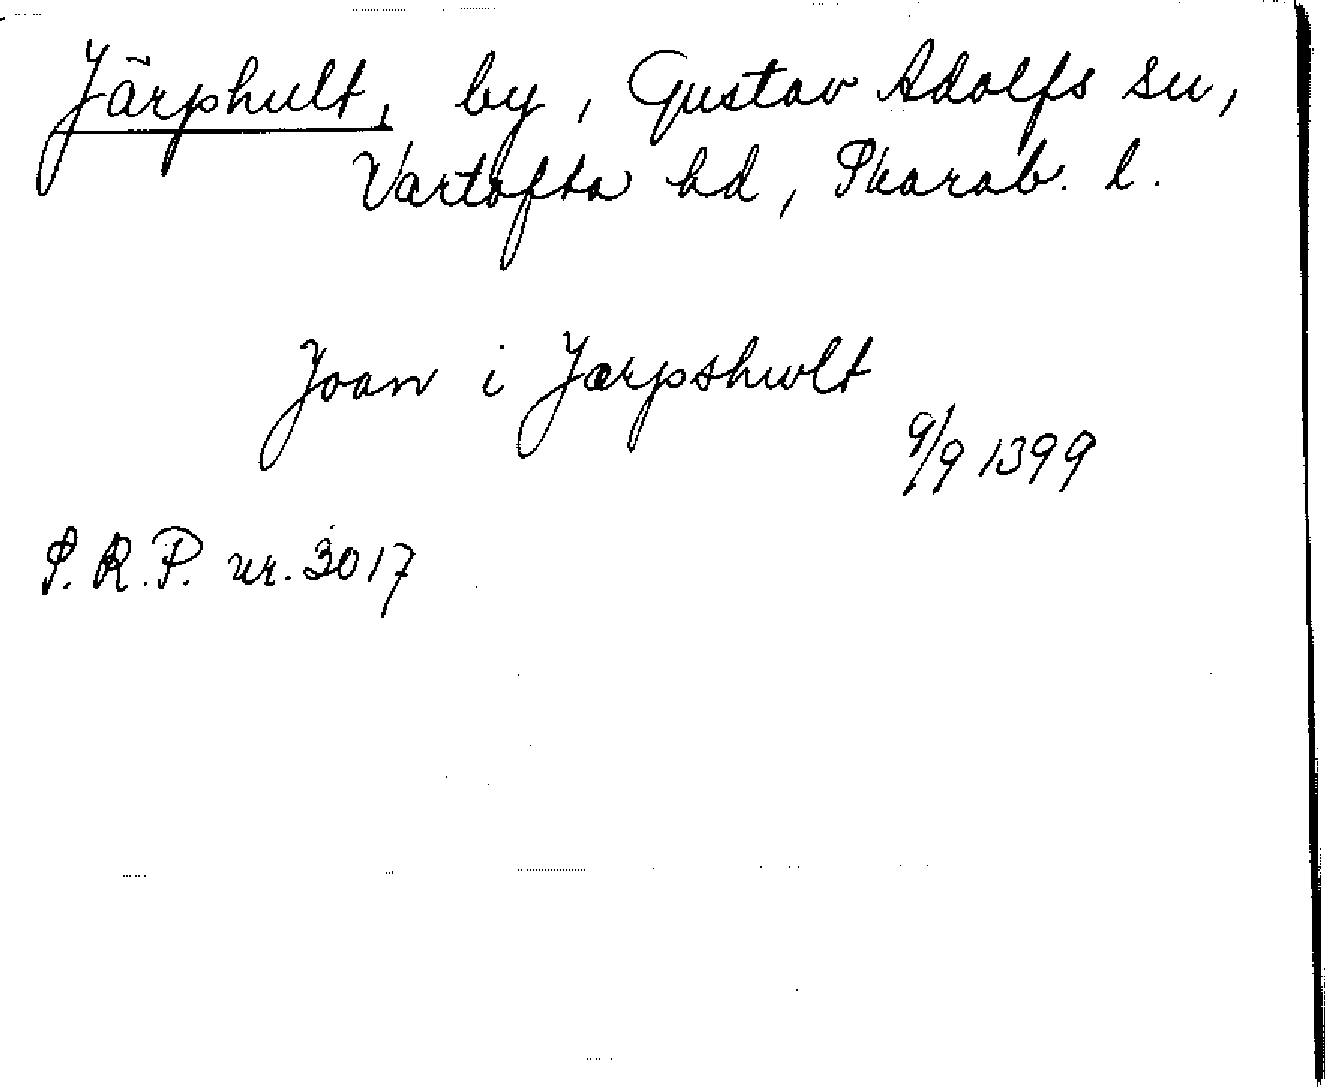 Järphult, by, Gustav Adolfs sn,
Vartofta hd, Skarab. l.
Joan i Jærpshwlt
9/9 1399
S.R.P. nr. 3017